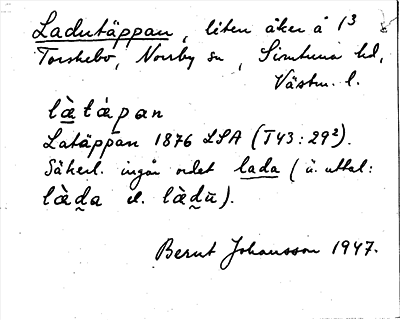 Ladutäppan, liten åker å 1³
Torskebo, Norrby sn, Simtuna hd,
Västm. l.
là̱tápan
Latäppan 1876 LSA (T43:29²).
Säkerl. ingår ordet lada (ä. uttal:
là̱ḏa el. làḏū).
Bernt Johansson 1947.